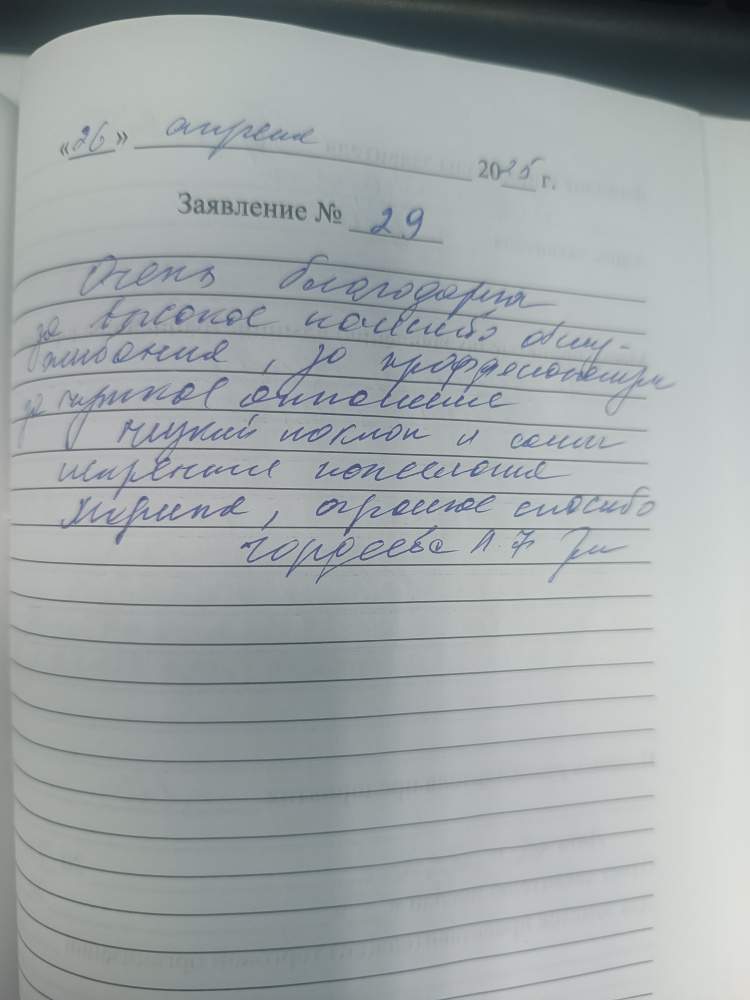 «26» апреля 2025 г.
Заявление № 29
Очень благодарна
за высокое качество обслу-
живания, за профессионализм
за чуткое отношение
Низкий поклон и самые
искренние пожелания
Марина, огромное спасибо
Гордеева Л. Ф.